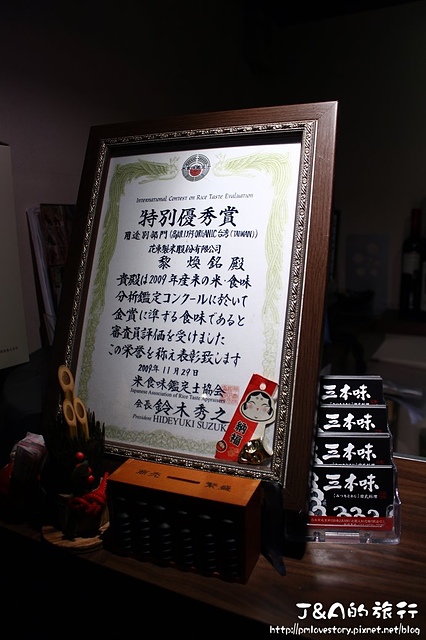 International Contest on Rice Taste Evaluation
特別優秀賞
用途別部門(高級1万円ORGANIC台湾(TAIWAN))
花東製米股份有限公司
黎 煥 銘 殿
貴殿は2009年産米の米・食味
分析鑑定コンクールに於いて
金賞に準ずる食味であると
審査員評価を受けました
この栄誉を称え表彰致します
2009年 11月29日
米食味鑑定士協会
Japanese Association of Rice Taste Appraisers
会長 鈴木秀之
President HIDEYUKI SUZUK
納福
三本味
三本味
三本味
三本味
J&A的旅行
http://prnlovestory.pixnet.net/blog